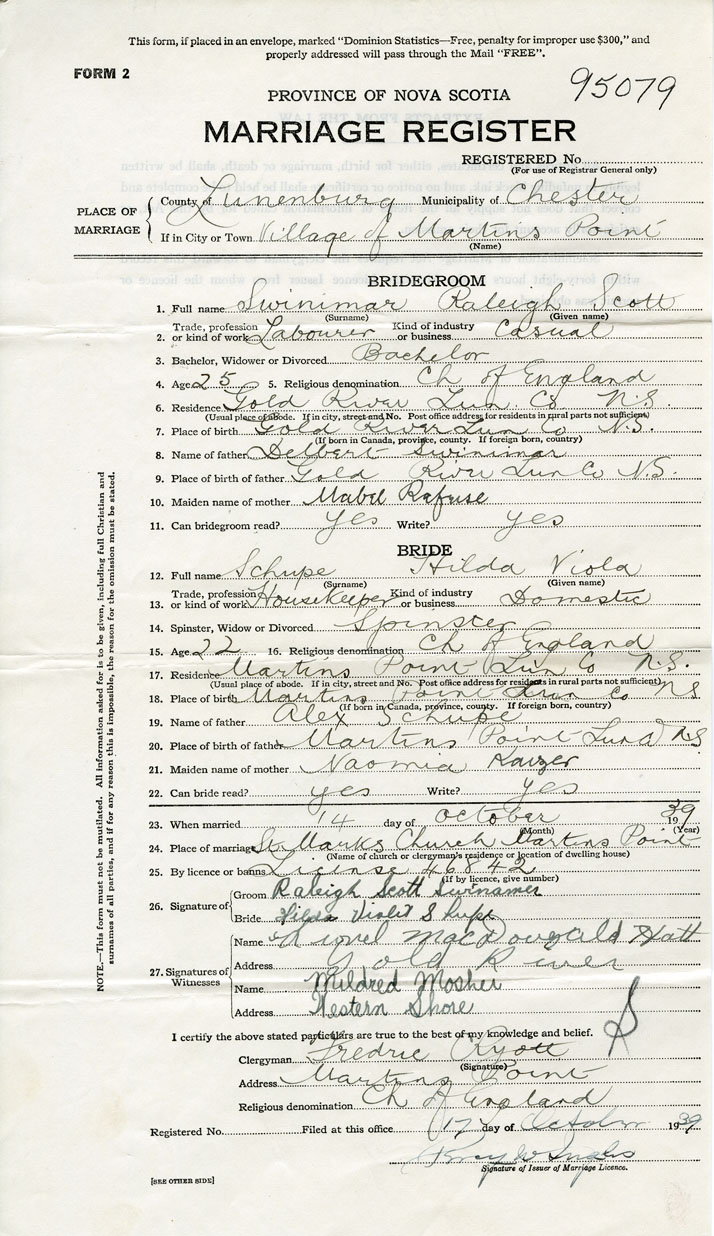 This form, if placed in an envelope, marked "Dominion Statistics—Free, penalty for improper use $300," and
properly addressed will pass through the Mail "FREE".
FORM 2
95079
PROVINCE OF NOVA SCOTIA
MARRIAGE REGISTER
REGISTERED No.
(For use of Registrar General only)
PLACE OF MARRIAGE
County of Lunenburg Municipality of Chester
If in City or Town Village of Martins Point
(Name)
BRIDEGROOM
1. Full name Swinimar Raleigh Scott
(Surname) (Given name)
2. Trade, profession or kind of work Labourer Kind of industry or business Casual
3. Bachelor, Widower or Divorced Bachelor
4. Age 25 5. Religious denomination Ch of England
6. Residence Gold River Lun. Co N.S.
(Usual place of abode. If in city, street and No. Post office address for residents in rural parts not sufficient)
7. Place of birth Gold River Lun Co N.S.
(If born in Canada, province, county. If foreign born, country)
8. Name of father Delbert Swinimar
9. Place of birth of father Gold River Lun Co N.S.
10. Maiden name of mother Mabel Rafuse
11. Can bridegroom read? yes Write? yes
BRIDE
12. Full name Schupe Hilda Viola
(Surname) (Given name)
13. Trade, profession or kind of work Housekeeper Kind of industry or business Domestic
14. Spinster, Widow or Divorced Spinster
15. Age 22 16. Religious denomination Ch of England
17. Residence Martins Point Lun Co N.S.
(Usual place of abode. If in city, street and No. Post office address for residents in rural parts not sufficient)
18. Place of birth Martins Point Lun Co NS
(If born in Canada, province, county. If foreign born, country)
19. Name of father Alex Schupe
20. Place of birth of father Martins Point NS
21. Maiden name of mother Naomia Kaizer
22. Can bride read? yes Write? yes
23. When married 14 day of October 1939
(Month) (Year)
24. Place of marriage St. Marks Church Martins Point
(Name of church or clergyman's residence or location of dwelling house)
25. By licence or banns License 46842
(If by licence, give number)
26. Signature of
Groom Raleigh Scott Swinamer
Bride Hilda Violet Shupe
27. Signatures of Witnesses
Name Lionel MacDougald Hatt
Address Gold River
Name Mildred Mosher
Address Western Shore
I certify the above stated particulars are true to the best of my knowledge and belief.
Clergyman Fredric Ryott
(Signature)
Address Martins Point
Religious denomination Ch of England
Registered No. Filed at this office 17 day of October 1939
Signature of Issuer of Marriage Licence.
[SEE OTHER SIDE]
NOTE.—This form must not be mutilated. All information asked for is to be given, including full Christian and
surnames of all parties, and if for any reason this is impossible, the reason for the omission must be stated.